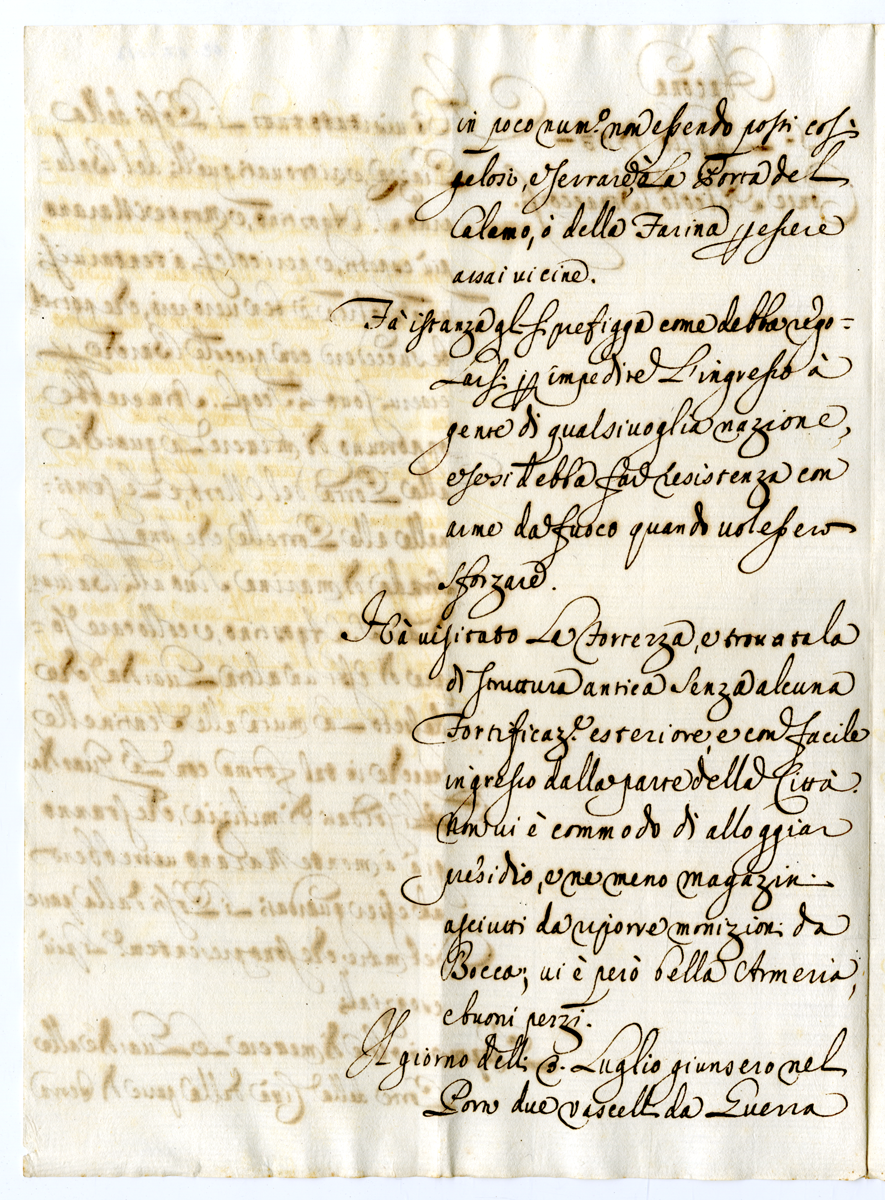 in poco num.º non essendo posti così
gelosi, e serrare la Porta del
Calamo, ò della Farina p essere
assai vicine.
Fà istanza gl. si prefigga come debba rego=
larsi p impedire l'ingresso à
gente di qualsivoglia nazione,
e se si debba far resistenza con
arme da fuoco quando volessero
sforzare.
Hà visitato la Fortezza, e trovatala
di struttura antica senza alcuna
Fortificaz.e esteriore, e con facile
ingresso dalla parte della Città.
non vi è commodo di alloggiar
presidio, e ne meno magazini
asciutti da riporre monizioni da
Bocca; vi è però bella Armeria,
e buoni pezzi.
Il giorno delli 3. Luglio giunsero nel
Porto due vascelli da Guerra